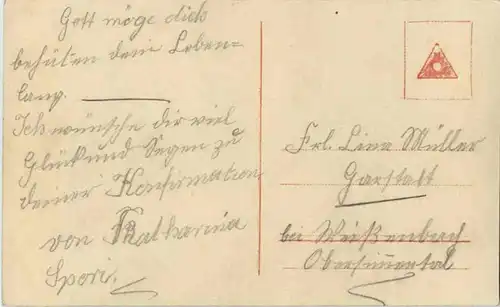 Gott möge dich
behüten dein Leben-
lang.
Ich wünsche dir viel
Glück und Segen zu
deiner Konfirmation
von Katharina
Spori.
Frl. Lina Müller
Garstatt
bei Weißenbach
Obersimmental